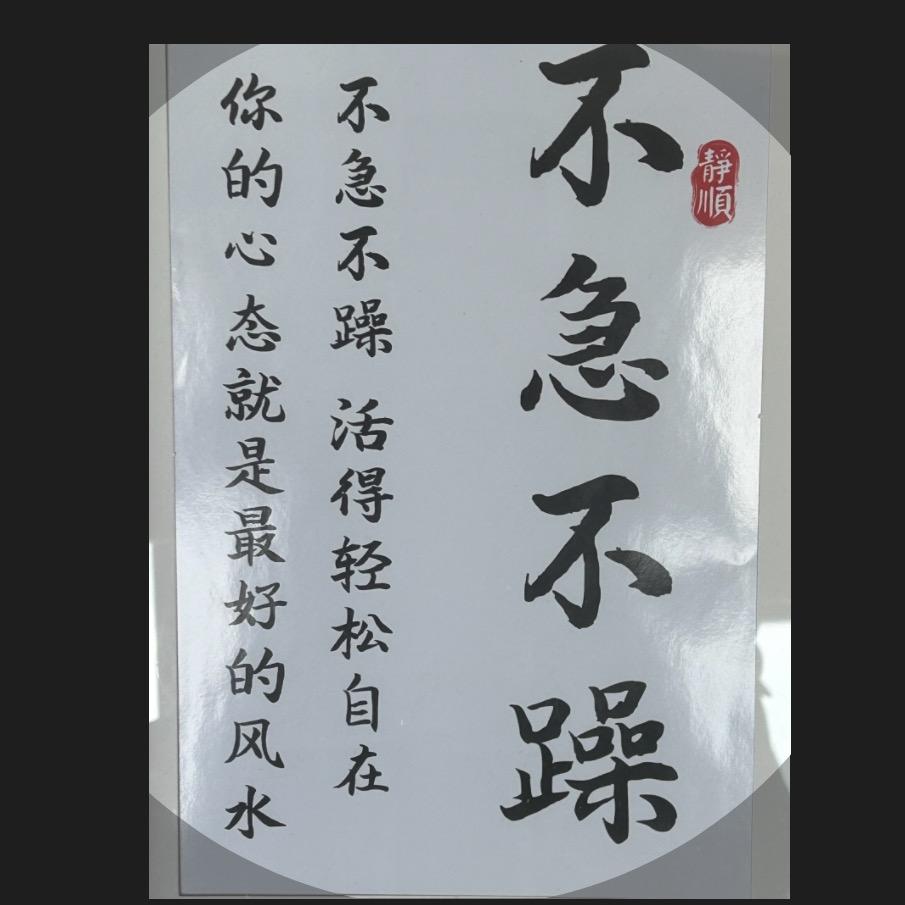 靜順
不急不躁
不急不躁 活得轻松自在
你的心态就是最好的风水